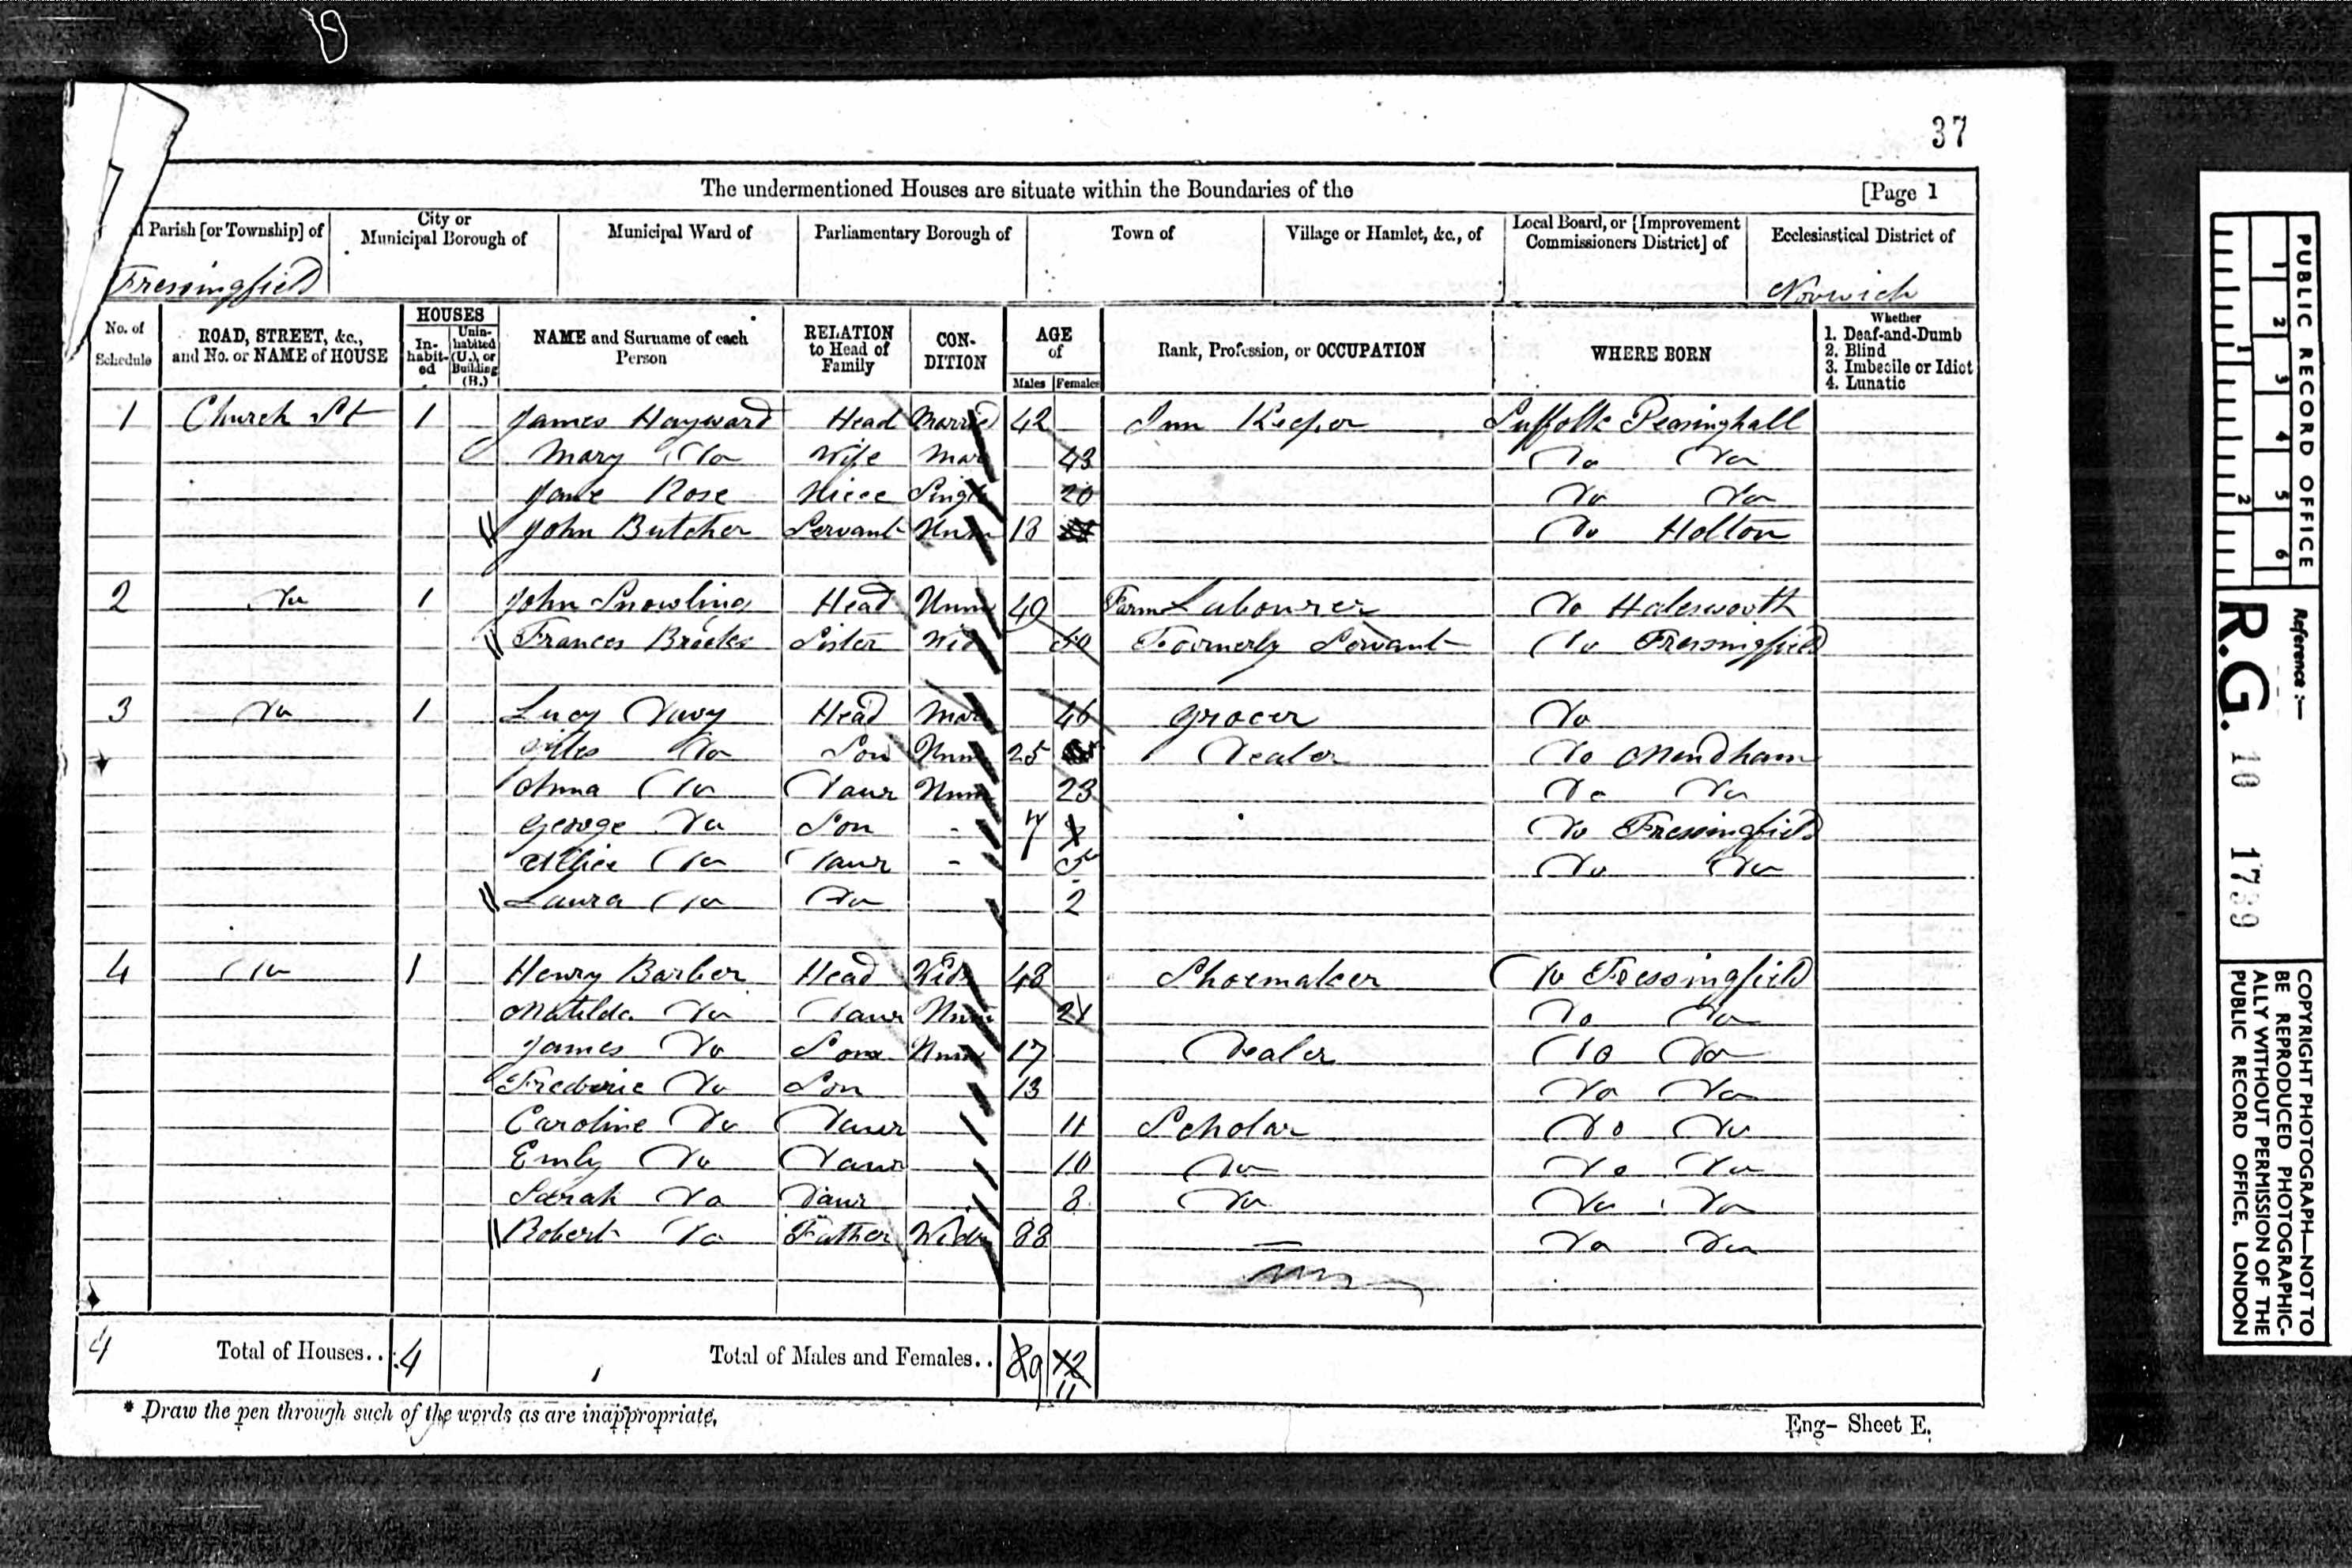 37
The undermentioned Houses are situate within the Boundaries of the [Page 1
Parish [or Township] of
City or Municipal Borough of
Municipal Ward of
Parliamentary Borough of
Town of
Village or Hamlet, &c., of
Local Board, or [Improvement Commissioners District] of
Ecclesiastical District of
Fressingfield Norwich
No. of Schedule
ROAD, STREET, &c., and No. or NAME of HOUSE
HOUSES
In-habit-ed
Unin-habited (U.), or Building (B.)
NAME and Surname of each Person
RELATION to Head of Family
CON-DITION
AGE of
Males Females
Rank, Profession, or OCCUPATION
WHERE BORN
Whether
1. Deaf-and-Dumb
2. Blind
3. Imbecile or Idiot
4. Lunatic
1 Church St 1 James Hayward Head Married 42 Inn Keeper Suffolk Peasinghall
Mary Do Wife Mar 43 Do Do
Jane Rose Niece Single 20 Do Do
John Butcher Servant Unm 18 Do Holton
2 Do 1 John Snowling Head Unm 49 Farm Labourer Do Halesworth
Frances Brooks Sister Wid Formerly Servant Do Fressingfield
3 Do 1 Lucy Davy Head Mar 46 Grocer Do
Do Son Unm 25 Dealer Do Mendham
Anna Do Daur Unm 23 Do Do
George Do Son - 7 Do Fressingfield
Allice Do Daur - 5 Do Do
Laura Do Do 2
4 Do 1 Henry Barber Head Widr 48 Shoemaker Do Fressingfield
Matilda Do Daur Unm 21 Do Do
James Do Son Unm 17 Dealer Do Do
Frederic Do Son 13 Do Do
Caroline Do Daur 11 Scholar Do Do
Emily Do Daur 10 Do Do Do
Sarah Do Daur 8 Do Do Do
Robert Do Father Widr 88 — Do Do
4 Total of Houses.. 4 Total of Males and Females.. 8 9 12 11
* Draw the pen through such of the words as are inappropriate.
Eng- Sheet E.
PUBLIC RECORD OFFICE
1 2 3 4 5 6
1 2
Reference :—
R.G. 10 1739
COPYRIGHT PHOTOGRAPH—NOT TO
BE REPRODUCED PHOTOGRAPHIC-
ALLY WITHOUT PERMISSION OF THE
PUBLIC RECORD OFFICE, LONDON